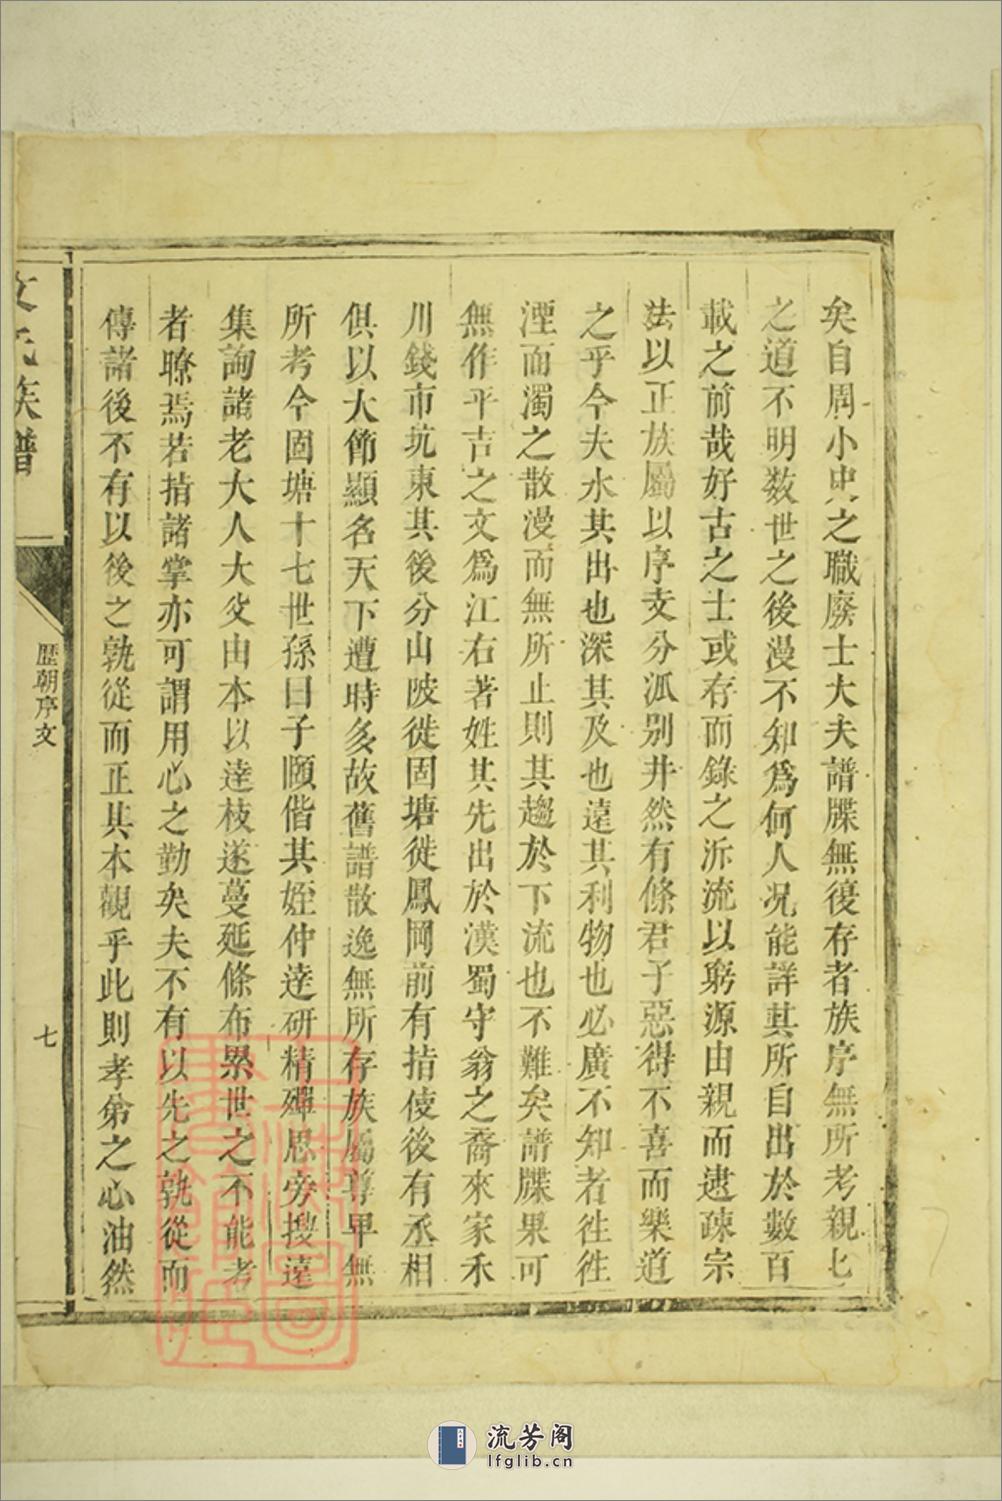 矣自周小史之職廢士大夫譜牒無復存者族序無所考親親
之道不明数世之後漫不知為何人况能詳其所自出於數百
載之前哉好古之士或存而錄之泝流以窮源由親而逮疎宗
法以正族屬以序支分派别井然有條君子惡得不喜而樂道
之乎今夫水其出也深其及也遠其利物也必廣不知者徃徃
湮而濁之散漫而無所止則其趨於下流也不難矣譜牒果可
無作乎吉之文為江右著姓其先出於漢蜀守翁之裔來家禾
川錢市坑東其後分山陂徙固塘徙鳳岡前有指使後有丞相
俱以大節顯名天下遭時多故舊譜散逸無所存族屬尊卑無
所考今固塘十七世孫曰子頤偕其姪仲逹研精殫思旁搜遠
集詢諸老大人大父由本以逹枝遂蔓延條布累世之不能考
者瞭焉若指諸掌亦可謂用心之勤矣夫不有以先之孰從而
傳諸後不有以後之孰從而正其本觀乎此則孝弟之心油然
文氏族譜
歷朝序文
七
流芳阁
lfglib.cn